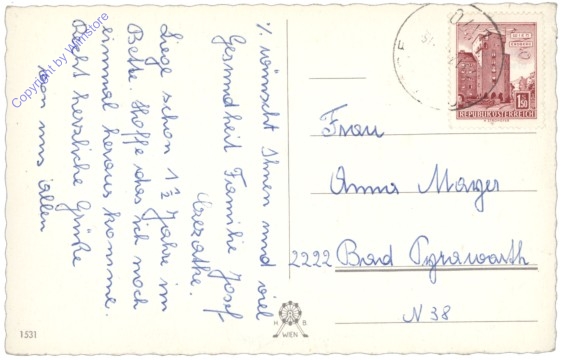 % wünscht Ihnen und viel
Gesundheit Familie Josef
Liege schon 1 ½ Jahr im
Bett. Hoffe das ich noch
einmal heraus komme.
Recht herzliche Grüße
von uns allen
Frau
Anna Mayer
2222 Bad Pyrawarth
N 38
WIEN
ERDBERG
1.50
REPUBLIK ÖSTERREICH
H B
WIEN
1531
Copyright by Wilnistore